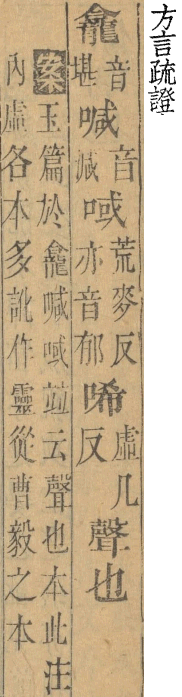 方言疏證
龕音堪喊音減㖪荒麥反亦音郁唏虛几反聲也
案玉篇於龕喊㖪竝云聲也本此注
內虛各本多訛作靈從曹毅之本